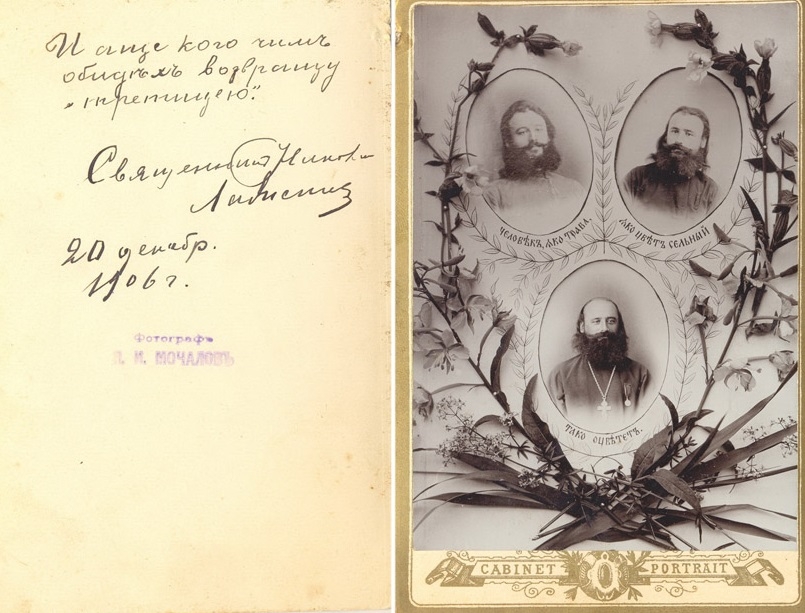 И аще кого чимъ
обидѣхъ возвращу
„четверицею".
Священникъ
20 декабр.
1906 г.
Фотографъ
И. МОЧАЛОВЪ
ЧЕЛОВѢКЪ, ЯКО ТРАВА,
ЯКО ЦВѢТЪ СЕЛЬНЫЙ
ТАКО ОЦВѢТЕТЪ.
CABINET PORTRAIT